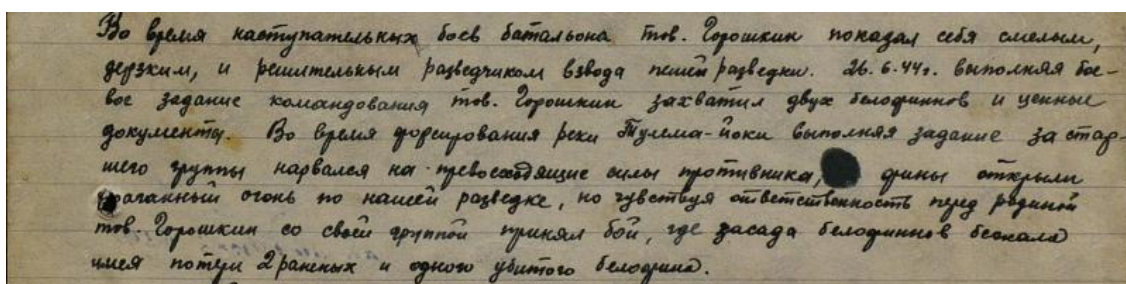 Во время наступательных боев батальона тов. Горошкин показал себя смелым,
дерзким, и решительным разведчиком взвода пешей разведки. 26.6.44г. выполняя бое-
вое задание командования, тов. Горошкин захватил двух белофиннов и ценные
документы. Во время форсирования реки Тулема-йоки выполняя задание за стар-
шего группы нарвался на превосходящие силы противника, фины открыли
ураганный огонь по нашей разведке, но чувствуя ответственность перед родиной
тов. Горошкин со своей группой принял бой, где засада белофиннов бежала
имея потери 2 раненых и одного убитого белофина.